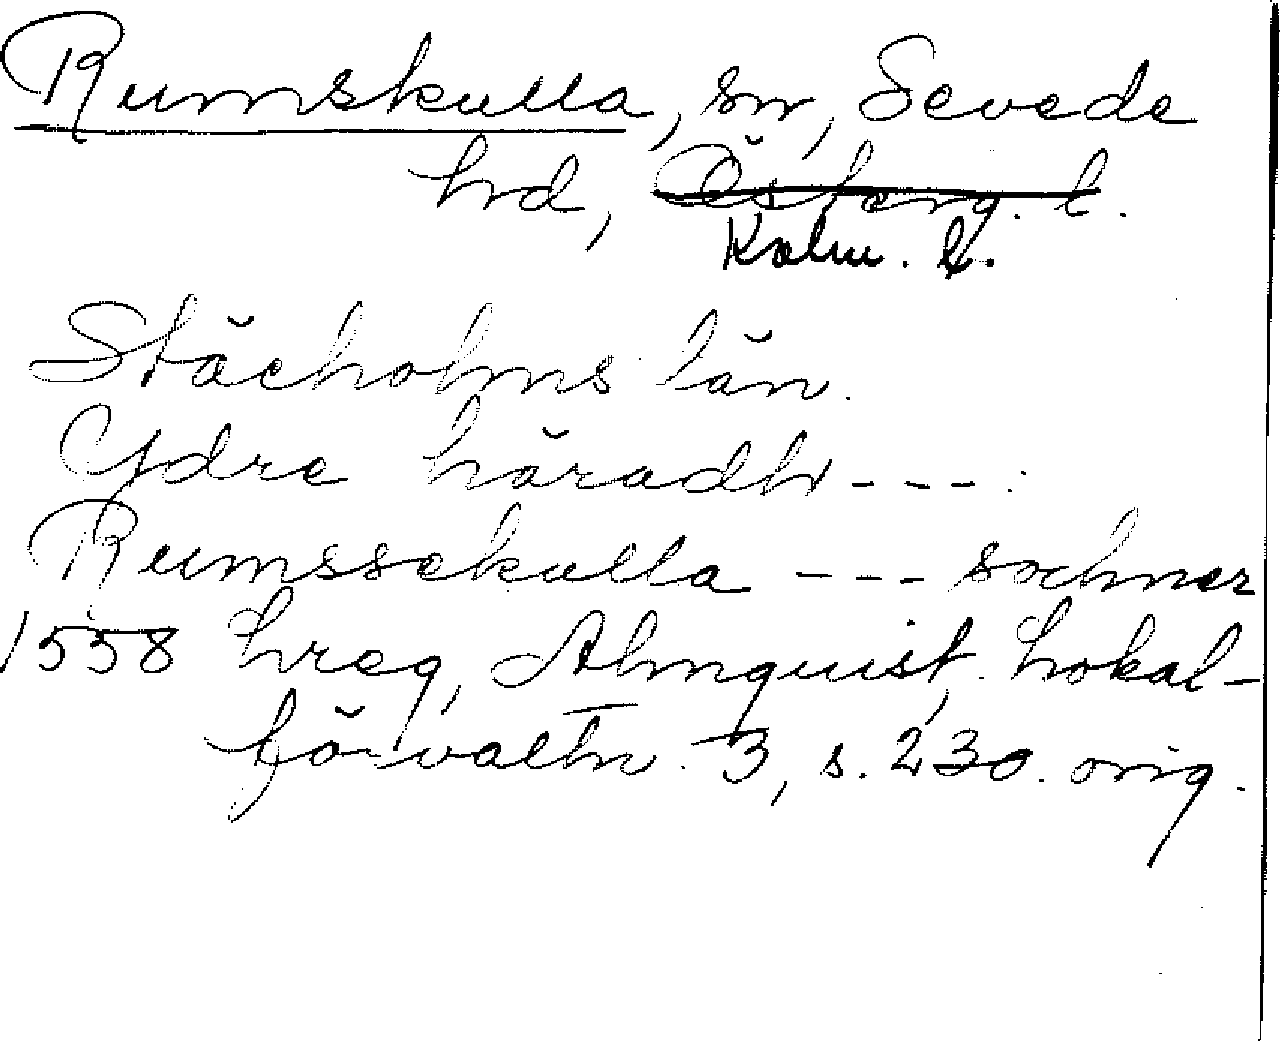 Rumskulla, sn, Sevede
hd, Österg. l.
Kalm. l.
Stächolms län.
Ydre häradh ---:
Rumssekulla --- sochner
1558 hreg, Almquist, Lokal-
förvaltn. 3, s. 230. orig.